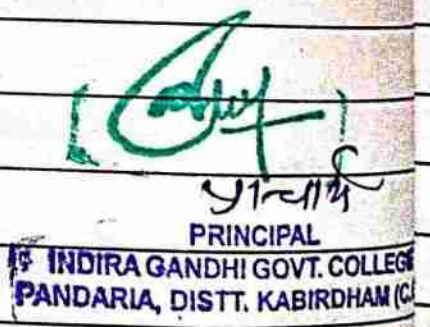 प्राचार्य
PRINCIPAL
INDIRA GANDHI GOVT. COLLEGE
PANDARIA, DISTT. KABIRDHAM (C.